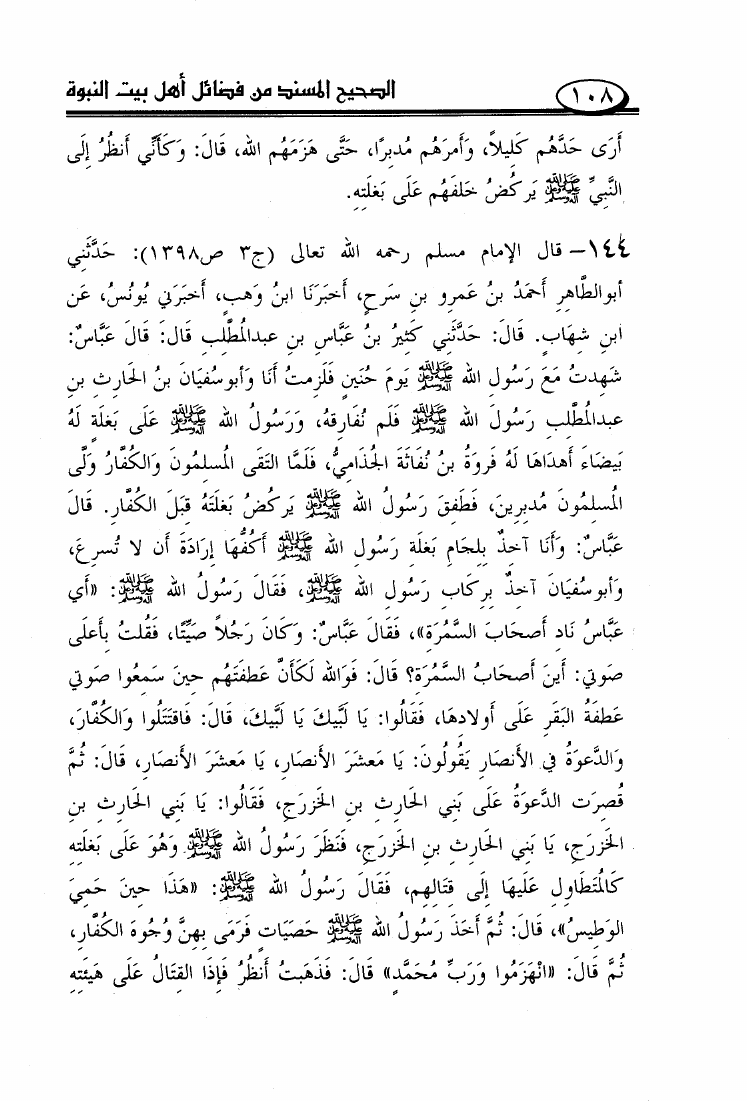 ١٠٨ الصحيح المسند من فضائل أهل بيت النبوة
أَرَى حَدَّهُم كَلِيلاً، وَأَمرَهُم مُدبِرًا، حَتَّى هَزَمَهُم الله، قَالَ: وَكَأَنِّي أَنظُرُ إِلَى
النَّبِيِّ ﷺ يَركُضُ خَلفَهُم عَلَى بَغلَتِهِ.
١٤٤- قال الإمام مسلم رحمه الله تعالى (ج٣ ص١٣٩٨): حَدَّثَنِي
أبوالطَّاهِرِ أَحمَدُ بنُ عَمرِو بنِ سَرحٍ، أَخبَرَنَا ابنُ وَهبٍ، أَخبَرَنِي يُونُسُ، عَن
ابنِ شِهَابٍ. قَالَ: حَدَّثَنِي كَثِيرُ بنُ عَبَّاسِ بنِ عبدالمُطَّلِبِ قَالَ: قَالَ عَبَّاسٌ:
شَهِدتُ مَعَ رَسُولِ الله ﷺ يَومَ حُنَينٍ فَلَزِمتُ أَنَا وَأَبوسُفيَانَ بنُ الحَارِثِ بنِ
عبدالمُطَّلِبِ رَسُولَ الله ﷺ فَلَم نُفَارِقهُ، وَرَسُولُ الله ﷺ عَلَى بَغلَةٍ لَهُ
بَيضَاءَ أَهدَاهَا لَهُ فَروَةُ بنُ نُفَاثَةَ الجُذَامِيُّ، فَلَمَّا التَقَى المُسلِمُونَ وَالكُفَّارُ وَلَّى
المُسلِمُونَ مُدبِرِينَ، فَطَفِقَ رَسُولُ الله ﷺ يَركُضُ بَغلَتَهُ قِبَلَ الكُفَّارِ. قَالَ
عَبَّاسٌ: وَأَنَا آخِذٌ بِلِجَامِ بَغلَةِ رَسُولِ الله ﷺ أَكُفُّهَا إِرَادَةَ أَن لا تُسرِعَ،
وَأبوسُفيَانَ آخِذٌ بِرِكَابِ رَسُولِ الله ﷺ، فَقَالَ رَسُولُ الله ﷺ: «أَي
عَبَّاسُ نَادِ أَصحَابَ السَّمُرَةِ»، فَقَالَ عَبَّاسٌ: وَكَانَ رَجُلاً صَيِّتًا، فَقُلتُ بِأَعلَى
صَوتِي: أَينَ أَصحَابُ السَّمُرَةِ؟ قَالَ: فَوَالله لَكَأَنَّ عَطفَتَهُم حِينَ سَمِعُوا صَوتِي
عَطفَةُ البَقَرِ عَلَى أَولادِهَا، فَقَالُوا: يَا لَبَّيكَ يَا لَبَّيكَ، قَالَ: فَاقتَتَلُوا وَالكُفَّارَ،
وَالدَّعوَةُ فِي الأَنصَارِ يَقُولُونَ: يَا مَعشَرَ الأَنصَارِ، يَا مَعشَرَ الأَنصَارِ، قَالَ: ثُمَّ
قُصِرَت الدَّعوَةُ عَلَى بَنِي الحَارِثِ بنِ الخَزرَجِ، فَقَالُوا: يَا بَنِي الحَارِثِ بنِ
الخَزرَجِ، يَا بَنِي الحَارِثِ بنِ الخَزرَجِ، فَنَظَرَ رَسُولُ الله ﷺ وَهُوَ عَلَى بَغلَتِهِ
كَالمُتَطَاوِلِ عَلَيهَا إِلَى قِتَالِهِم، فَقَالَ رَسُولُ الله ﷺ: «هَذَا حِينَ حَمِيَ
الوَطِيسُ»، قَالَ: ثُمَّ أَخَذَ رَسُولُ الله ﷺ حَصَيَاتٍ فَرَمَى بِهِنَّ وُجُوهَ الكُفَّارِ،
ثُمَّ قَالَ: «انْهَزَمُوا وَرَبِّ مُحَمَّدٍ» قَالَ: فَذَهَبتُ أَنظُرُ فَإِذَا القِتَالُ عَلَى هَيئَتِهِ